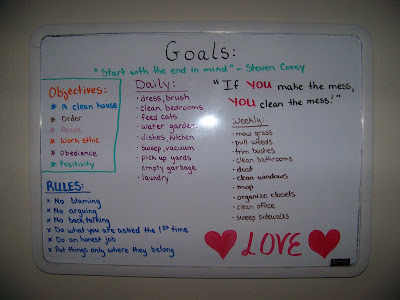 Goals:
"Start with the end in mind" - Steven Covey
Objectives:
* A clean house
* Order
* Peace
* Work ethic
* Obedience
* Positivity
RULES:
x No blaming
x No arguing
x No backtalking
x Do what you are asked the 1st time
x Do an honest job
x Put things only where they belong
Daily:
• dress, brush
• clean bedrooms
• feed cats
• water garden
• dishes, kitchen
• sweep, vacuum
• pick up yards
• empty garbage
• laundry
"If YOU make the mess,
YOU clean the mess!"
Weekly:
• mow grass
• pull weeds
• trim bushes
• clean bathrooms
• dust
• clean windows
• mop
• organize closets
• clean office
• sweep sidewalks
LOVE